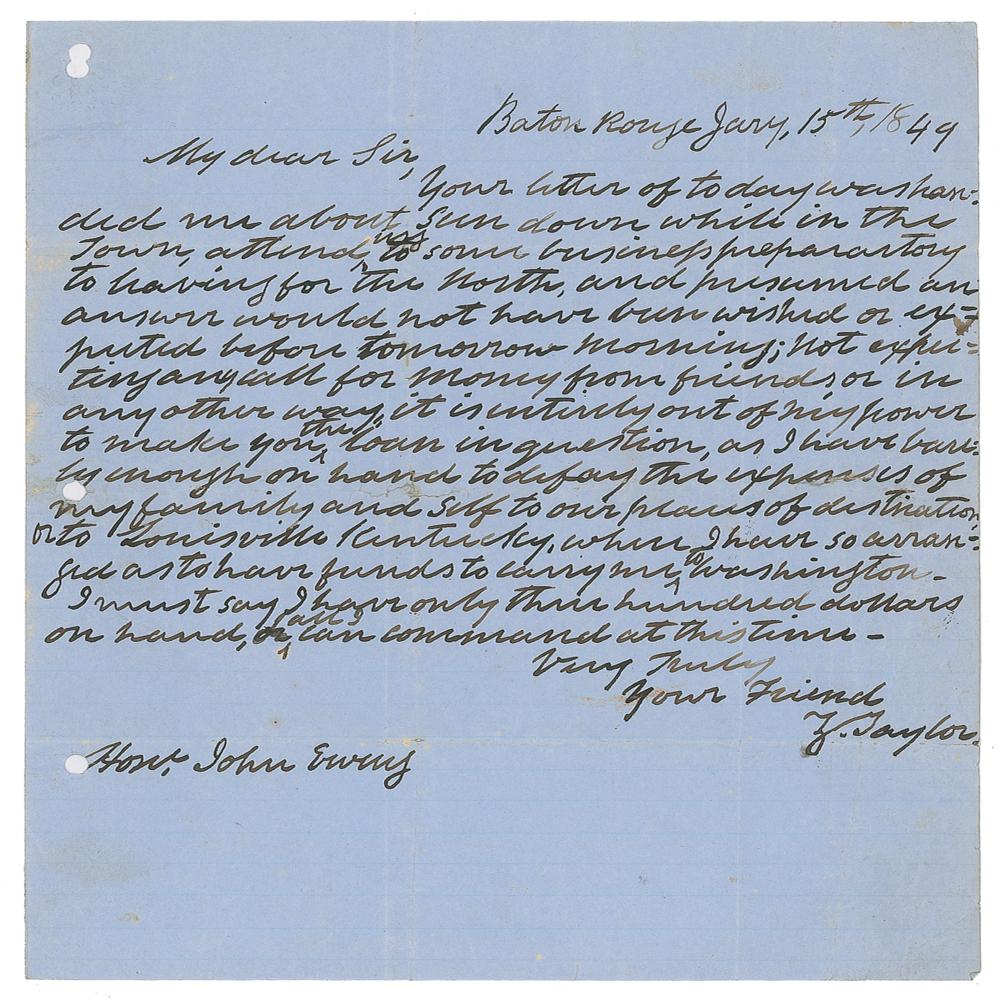 Baton Rouge Jary, 15th, 1849
My dear Sir,
Your letter of today was han-
ded me about sun down while in the
Town, attending to some business preparartory
to leaving for the North, and presumed an
answer would not have been wished or ex-
pected before tomorrow morning; not expec-
ting any call for money from friends, or in
any other way, it is entirely out of my power
to make you the loan in question, as I have bare-
ly enough on hand to defay the expenses of
my family and self to our places of destination
or to Louisville Kentucky, where I have so arran-
ged as to have funds to carry me to Washington -
I must say I have only three hundred dollars
on hand, or all I can command at this time -
Very Truly
Your Friend
Z. Taylor.
Honr. John Ewing